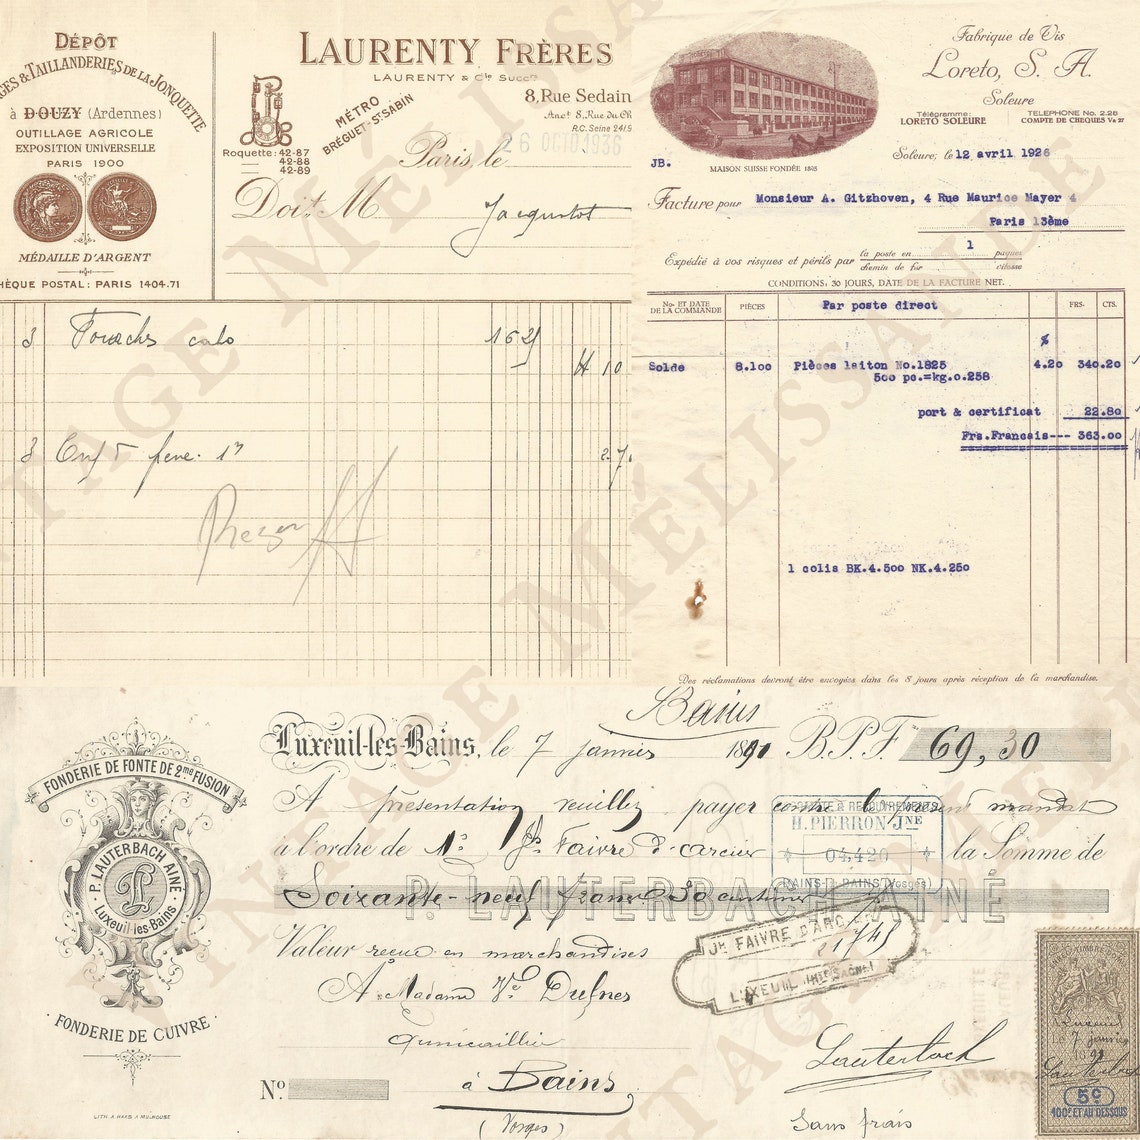 DÉPÔT
GES & TAILLANDERIES DE LA JONQUETTE
à DOUZY (Ardennes)
OUTILLAGE AGRICOLE
EXPOSITION UNIVERSELLE
PARIS 1900
MÉDAILLE D'ARGENT
HÈQUE POSTAL: PARIS 1404.71
LAURENTY FRÈRES
LAURENTY & Cie Succrs
8, Rue Sedain
Anct 8, Rue du Ch
R.C. Seine 241.9
MÉTRO
BRÉGUET-ST-SABIN
Roquette: 42-87
42-88
42-89
Paris, le 26 OCTO 1936
Doit M
3
162
3
Fabrique de Vis
Loreto, S. A.
Soleure
Télégramme:
LORETO SOLEURE
TELEPHONE No. 2.28
COMPTE DE CHEQUES Va 27
MAISON SUISSE FONDÉE 1895
JB.
Soleure, le 12 avril 1926
Facture pour Monsieur A. Gitzhoven, 4 Rue Maurice Mayer 4
Paris 13ème
Expédié à vos risques et périls par la poste en 1 paquet
chemin de fer vitesse
CONDITIONS: 30 JOURS, DATE DE LA FACTURE NET.
No. ET DATE DE LA COMMANDE PIÈCES Par poste direct FRS. CTS.
%
Solde 8.100 Pièces laiton No.1825 4.20 340.20
500 pc.=kg.0.258
port & certificat 22.80
Frs.Francais--- 363.00
1 colis BK.4.500 NK.4.250
Des réclamations devront être envoyées dans les 8 jours après réception de la marchandise.
Bains
Luxeuil-les-Bains, le 7 janvier 1891 B.P.F. 69,30
A présentation veuillez payer contre le présent mandat
à l'ordre de Mr. Jh Faivre d'Arcier la Somme de
Soixante-neuf francs 30 centimes
P. LAUTERBACH AINÉ
Valeur reçue en marchandises
A Madame Ve Dufnes
Quincaillier
à Bains
(Vosges)
No.
Lauterbach
Sans frais
FONDERIE DE FONTE DE 2me FUSION
P. LAUTERBACH AINÉ
PL
Luxeuil-les-Bains
FONDERIE DE CUIVRE
LITH. A HAAS A MULHOUSE
& RECOUVREMENTS
H. PIERRON JNE
04,420
BAINS-L-BAINS (Vosges)
JH FAIVRE D'ARC
1745
LUXEUIL
Luxeuil
le 7 janvier
1891
Lauterbach
5c
100f ET AU DESSOUS
VINTAGE MÉLISSANDRE